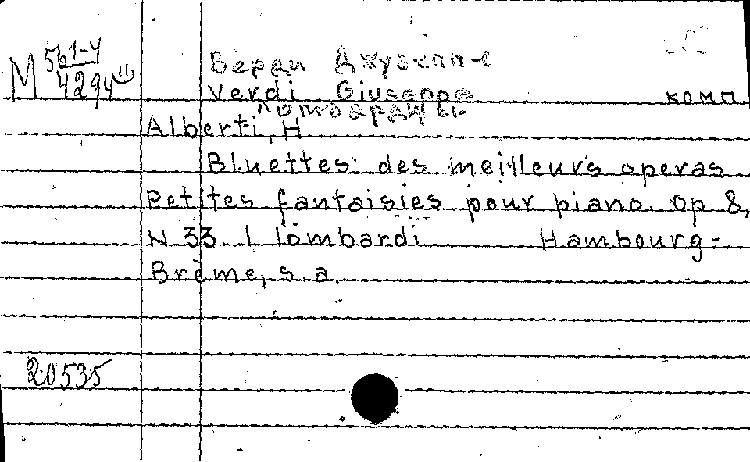 М 561-4
4294
Верди Джузеппе
Verdi Giuseppe комп
Ломбардцы
Alberti, H
Bluettes des meilleurs operas
Petites fantaisies pour piano. op 8,
N 33 I lombardi Hambourg-
Brême, s. a.
20535